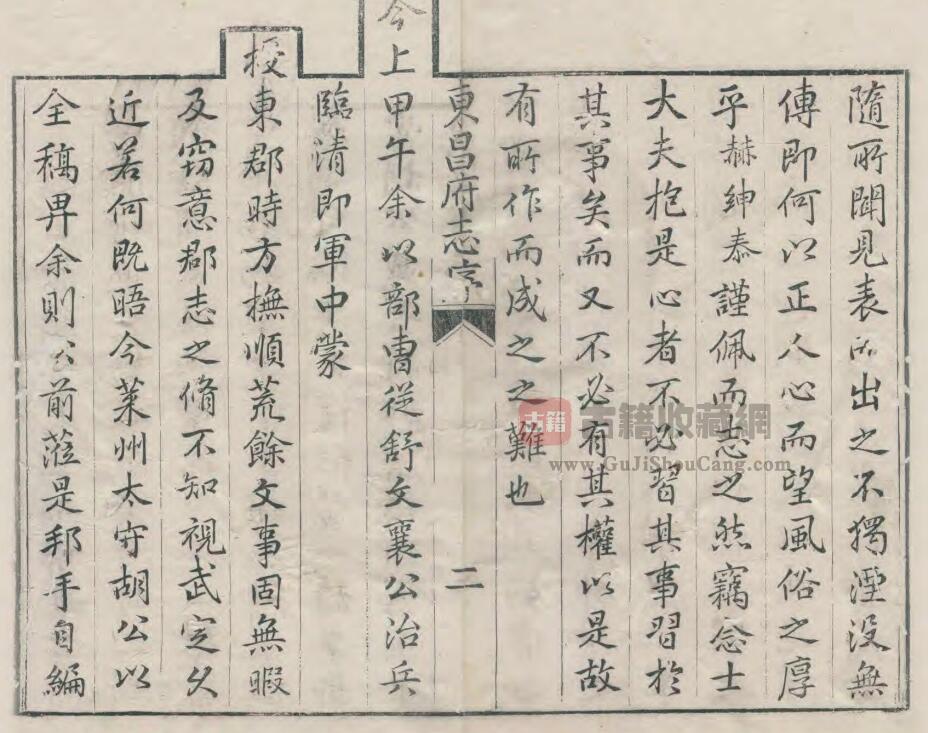 隨所聞見表而出之不獨湮没無
傳即何以正人心而望風俗之厚
乎赫紳恭謹佩而志之然竊念士
大夫抱是心者不必習其事習於
其事矣而又不必有其權以是故
有所作而成之之難也
東昌府志序
二
今上甲午余以部曹從舒文襄公治兵
臨清即軍中蒙
授東郡時方撫順荒餘文事固無暇
及竊意郡志之脩不知視武定久
近若何既晤今萊州太守胡公以
全稿畀余則公前蒞是邦手自編
古籍
古籍收藏網
www.GuJiShouCang.com